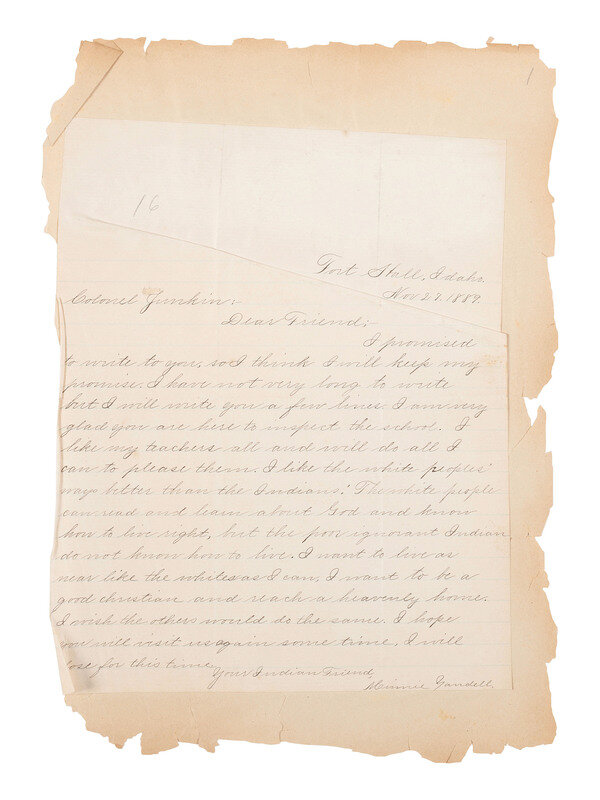 16
Fort Hall, Idaho.
Nov 27. 1889.
Colonel Junkin:
Dear Friend;
I promised
to write to you, so I think I will keep my
promise. I have not very long to write
but I will write you a few lines. I am very
glad you are here to inspect the school. I
like my teachers all and will do all I
can to please them. I like the white peoples'
ways better than the Indians'. The white people
can read and learn about God and know
how to live right, but the poor ignorant Indian
do not know how to live. I want to live as
near like the whites as I can, I want to be a
good christian and reach a heavenly home.
I wish the others would do the same. I hope
you will visit us again some time. I will
close for this time.
Your Indian Friend
Minnie Yandell.